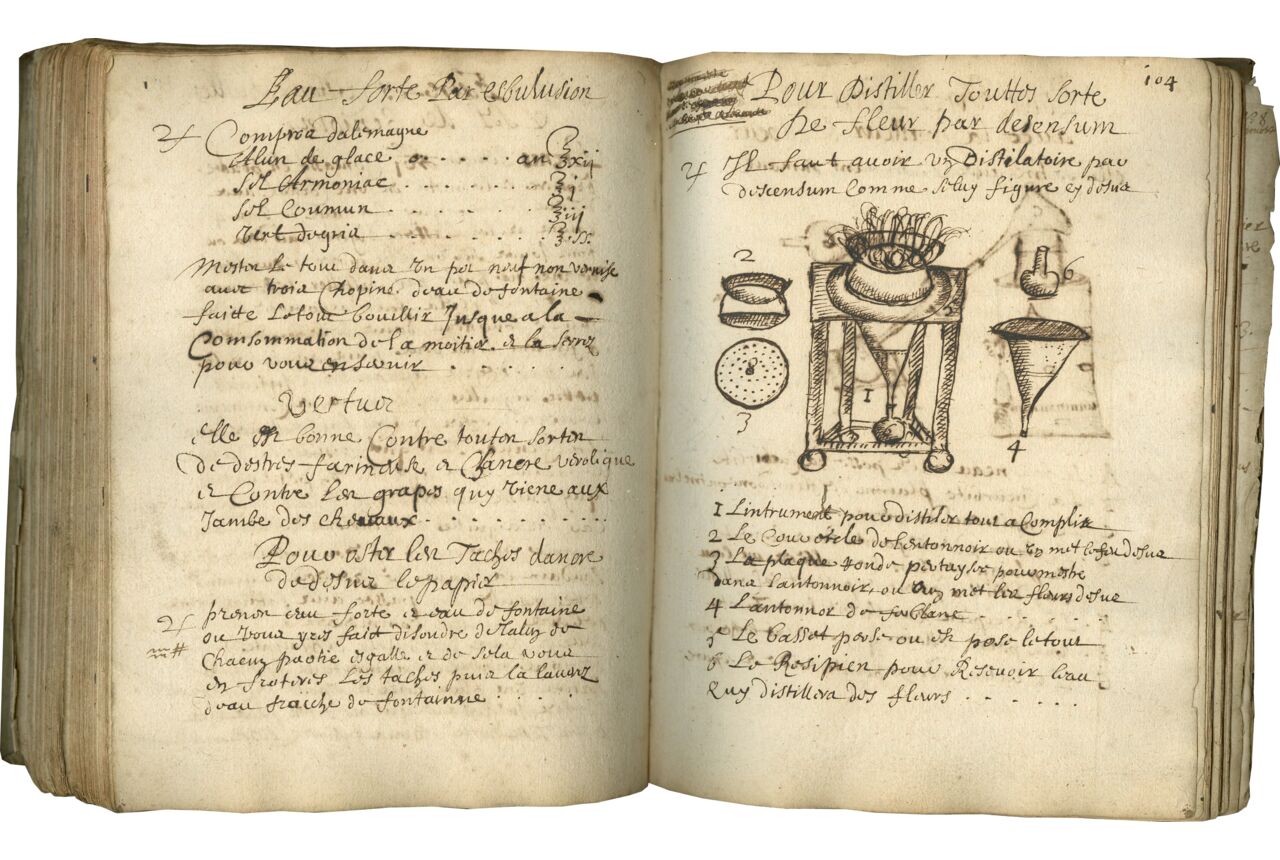 Eau forte Par esbulusion
♃ Comproza dalemagne
Alun de glace . . . . . . an ℥xij
sel Armoniac . . . . . . . ℥j
sel Coumun . . . . . . ℥iij
Vert degris . . . . . . .
Mester le tout dans Un pot neuf non vernise
avec trois Chopine deau de fontaine
faitte letout bouillir Jusque a la
Consommation de la moitier et la serrez
pour vous en servir . . . . .
Vertus
elle est bonne Contre toutes sortes
de destres farineuse et Chancre verolique
et Contre les grapes quy viene aux
Jambe des chevaux . . . . . . . . .
Pour oster les Taches dancre
de desus le papier
♃ prenon eau forte et eau de fontaine
ou Vous yres fait disoudre de lalun de
Chacun partie esgalle et de sela vous
en froteres Les taches puis la laverez
deau fraiche de fontainne . . . . . .
104
Pour Distiller Touttes sorte
De fleur par desensum
♃ Il faut avoir Un Distelatoire par
descensum Comme seluy figure cy desus
2
6
1
8
3
4
1 Lintrument pour distiler tout acomplis
2 Le Couvercle de lentonnoir ou on met le feu desus
3 La plaque Ronde per pour mestre
dans lantonnoir, ou on met les fleurs desus
4 Lantonnor de ferblanc . . . . . . .
5 Le basset perse ou est pose letout
6 Le Resipien pour Resevoir leau
Quy distillera des fleurs . . . . . .